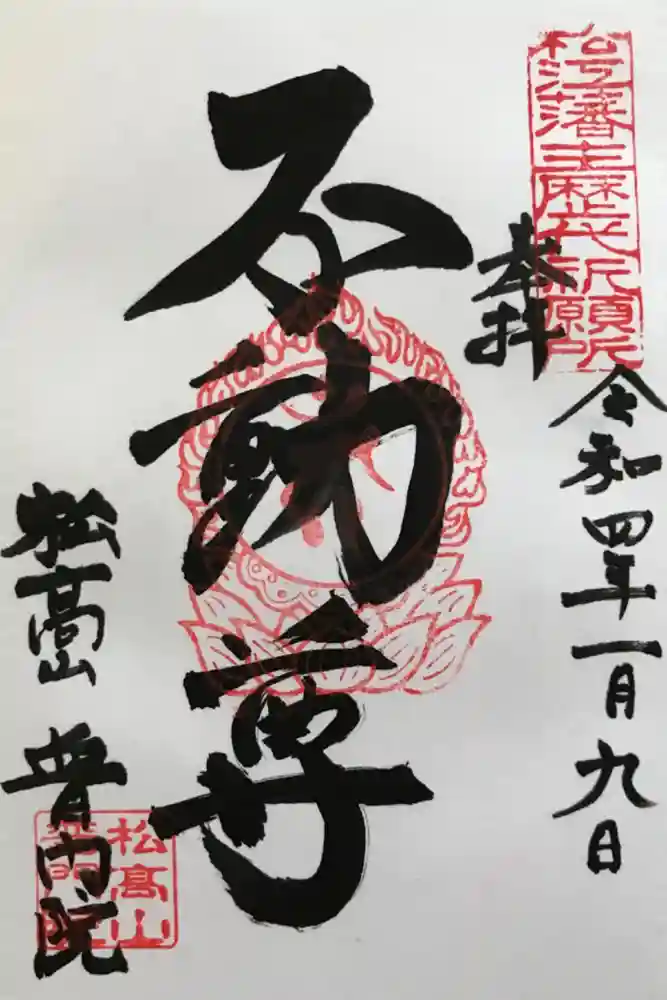 松江藩主歴代祈願所
奉拝
令和四年一月九日
不動尊
松高山 普門院
松高山
普門院